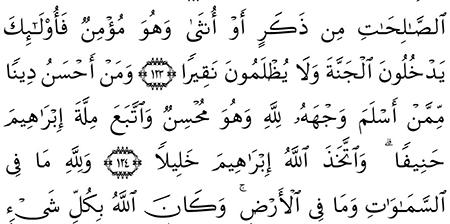 ٱلصَّـٰلِحَـٰتِ مِن ذَكَرٍ أَوْ أُنثَىٰ وَهُوَ مُؤْمِنٌ فَأُوْلَـٰٓئِكَ
يَدْخُلُونَ ٱلْجَنَّةَ وَلَا يُظْلَمُونَ نَقِيرًا ١٢٣ وَمَنْ أَحْسَنُ دِينًا
مِّمَّنْ أَسْلَمَ وَجْهَهُۥ لِلَّهِ وَهُوَ مُحْسِنٌ وَٱتَّبَعَ مِلَّةَ إِبْرَٰهِيمَ
حَنِيفًا ۗ وَٱتَّخَذَ ٱللَّهُ إِبْرَٰهِيمَ خَلِيلًا ١٢٤ وَلِلَّهِ مَا فِى
ٱلسَّمَـٰوَٰتِ وَمَا فِى ٱلْأَرْضِ ۚ وَكَانَ ٱللَّهُ بِكُلِّ شَىْءٍ